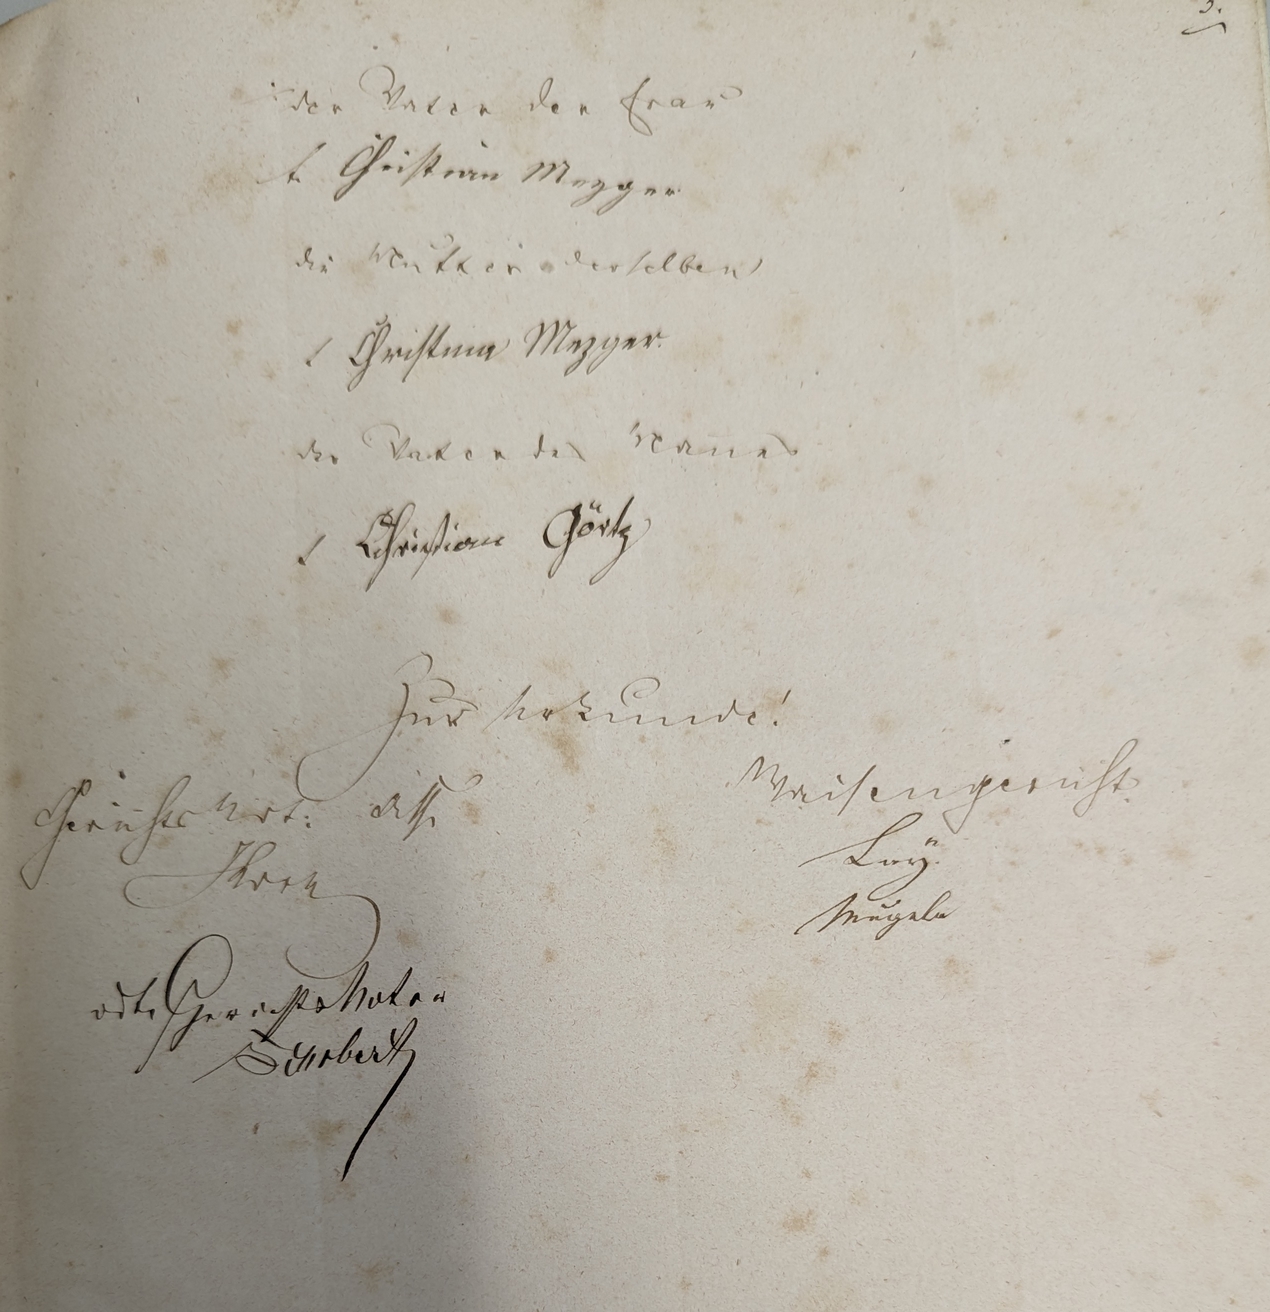 3.
der Vater der Frau
t. Christian Mezger
die Mutter derselben
t Christina Mezger.
der Vater des Mannes
t Christian Görtz
Zur Urkunde!
Gerichts Not: Ass.
Waisengericht.
vdt. Gerichts Notar